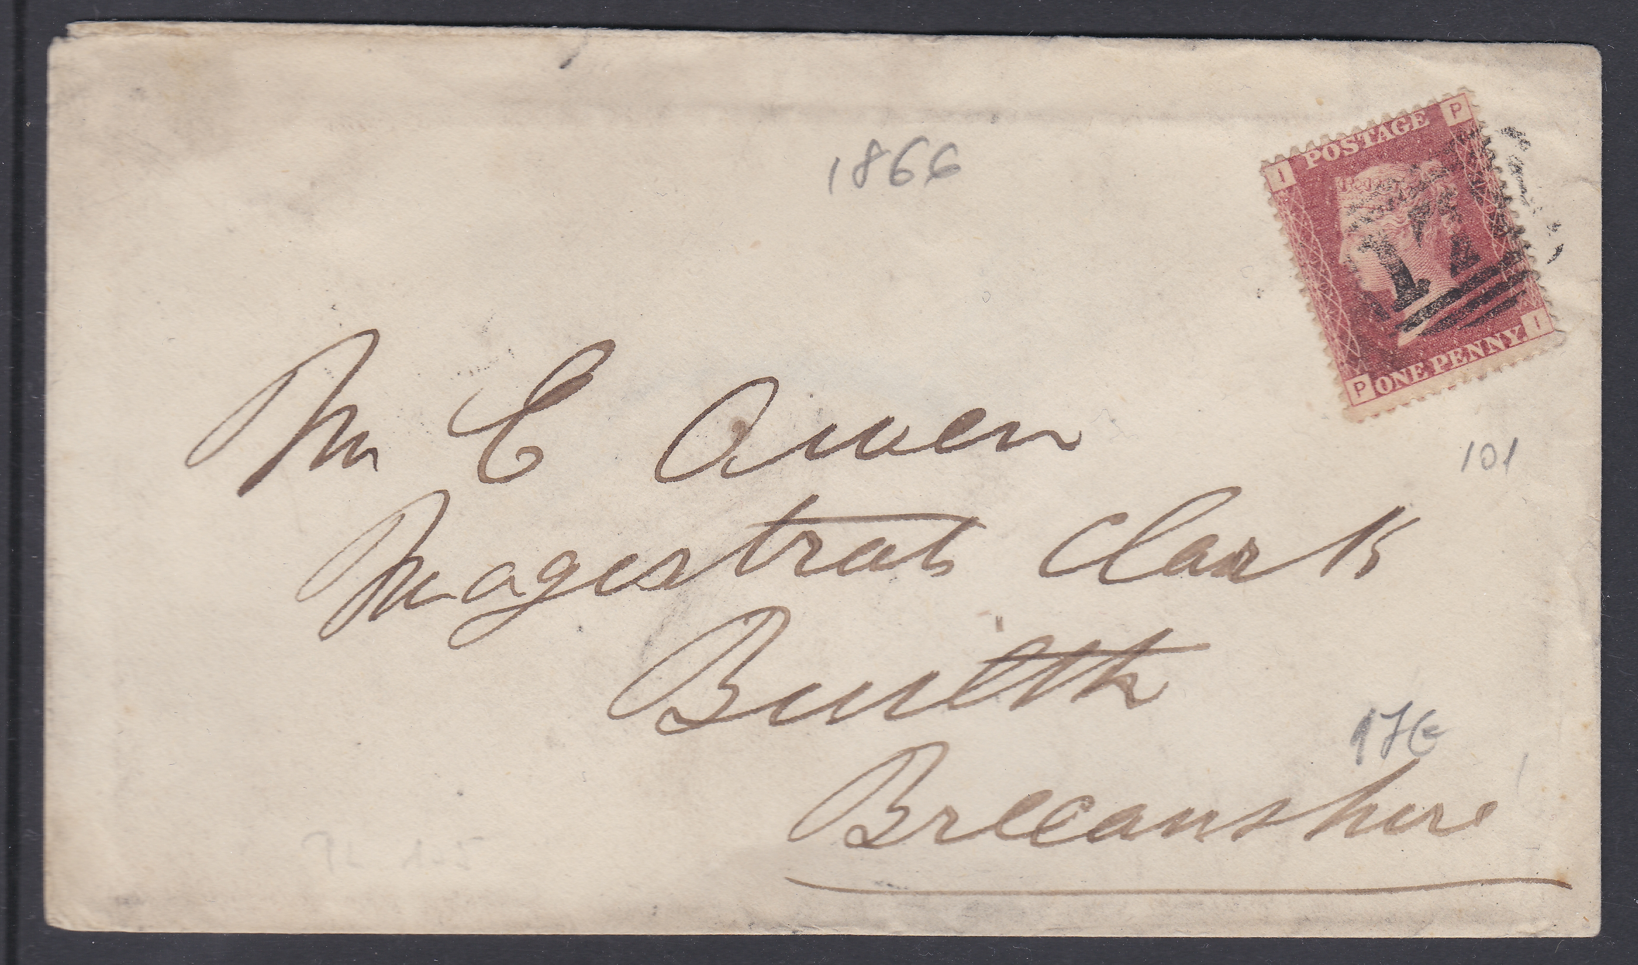 1866
I POSTAGE P
P ONE PENNY I
101
Mr C Owen
Magistrats Clark
Builth
Brecanshire